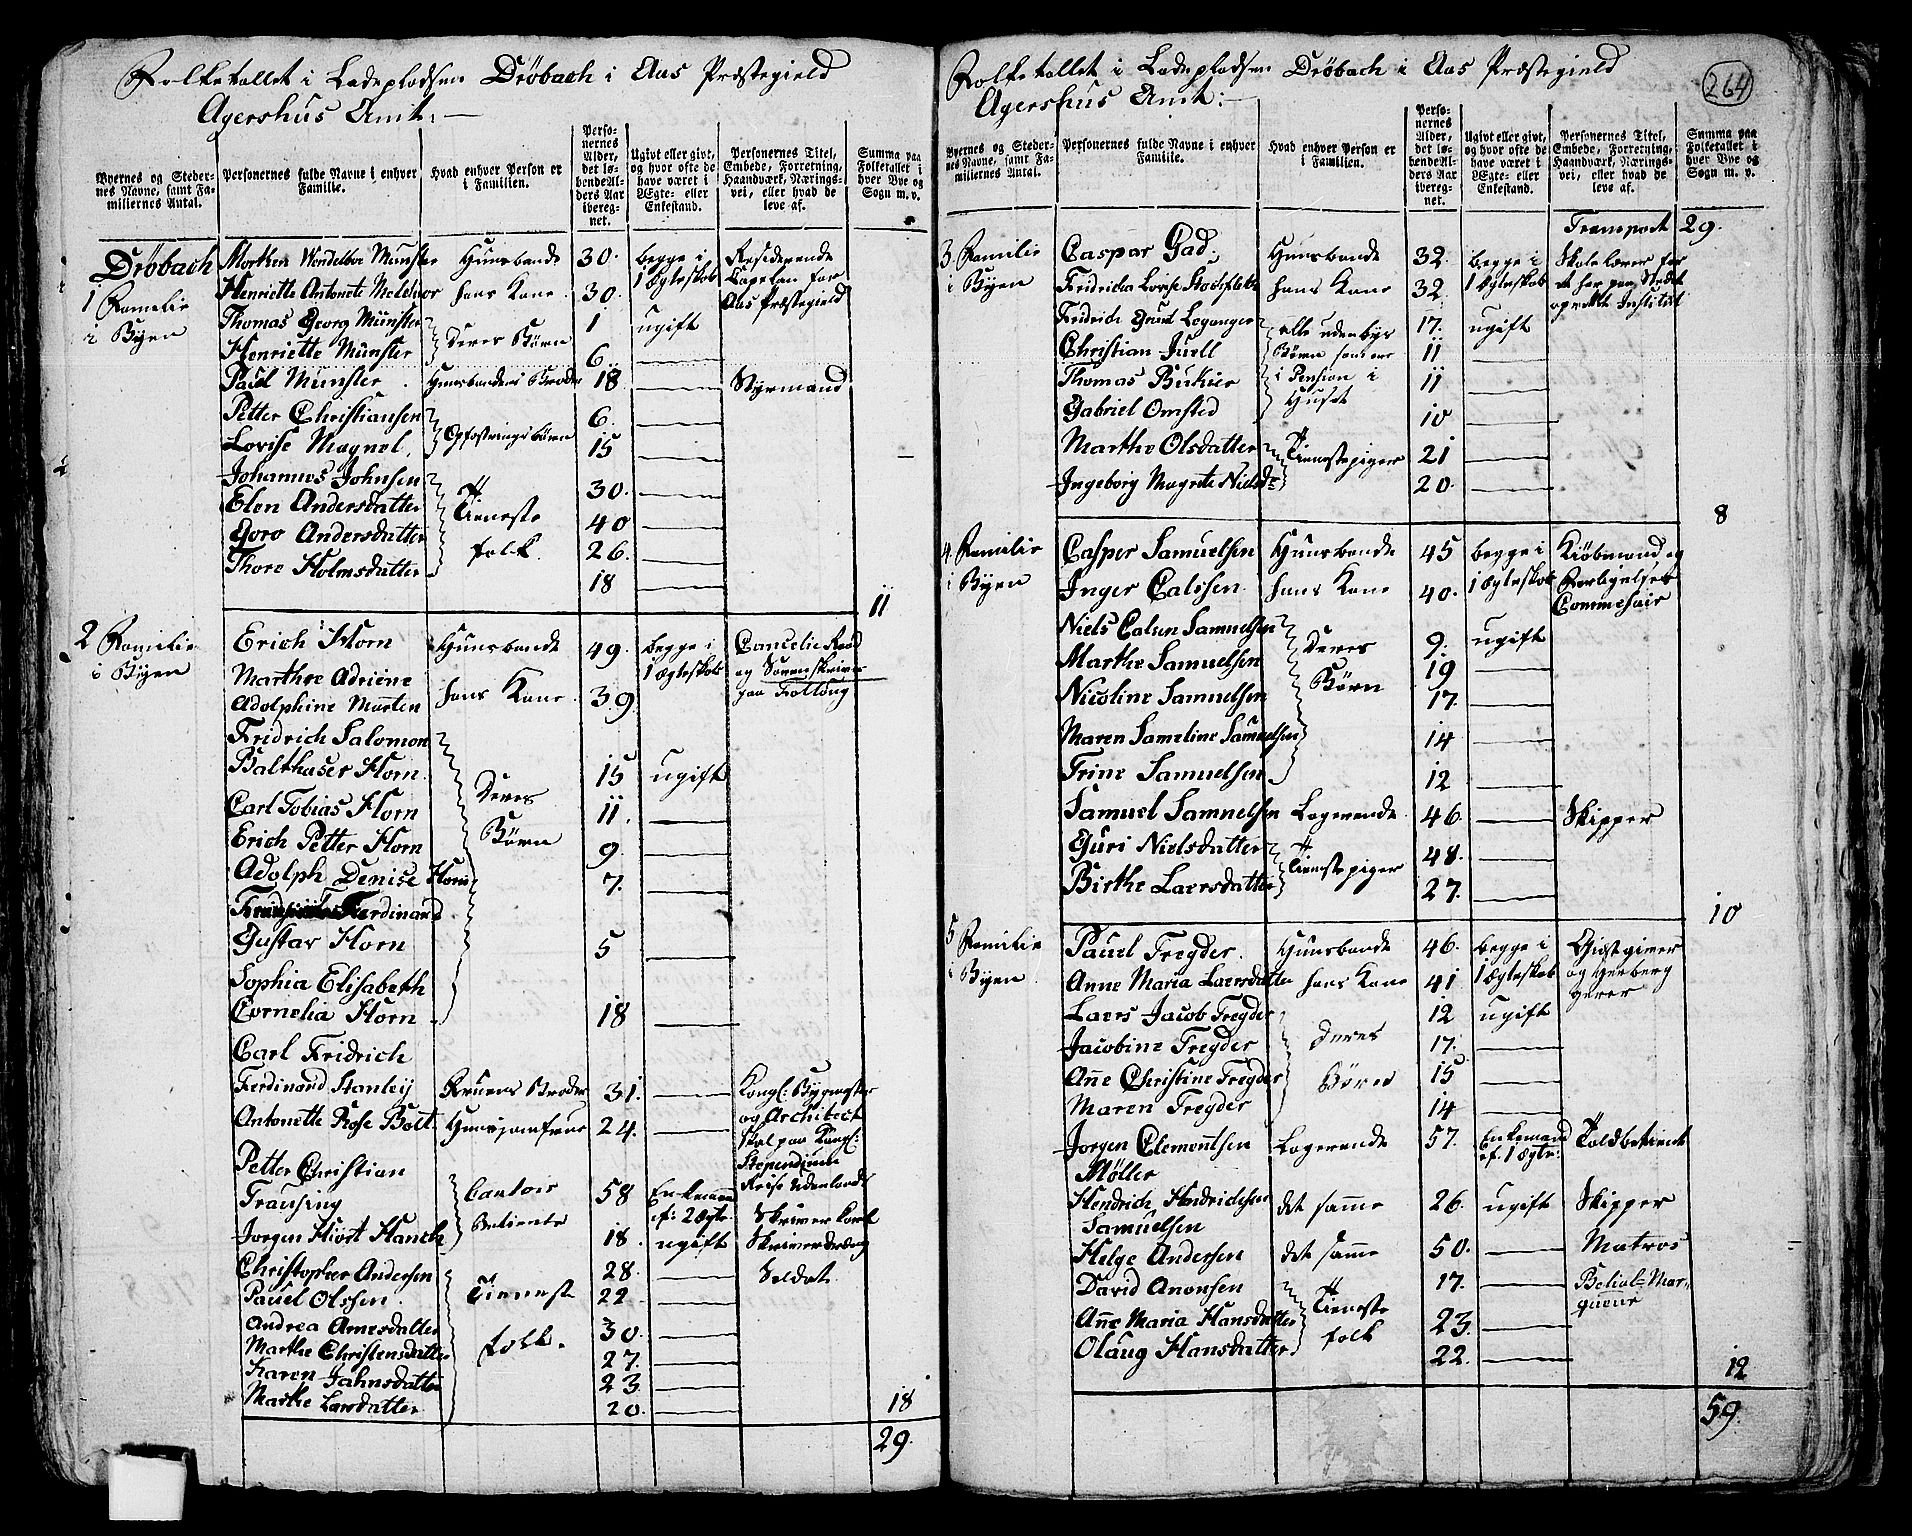 Folketallet i Ladepladsen Dröbach i Aas Præstegield
Agershus Amt:
Byernes og Stedernes Navne, samt Familiernes Antal.
Personernes fulde Navne i enhver Familie.
Hvad enhver Person er i Familien.
Personernes Alder, det løbende Alders Aar iberegnet.
Ugivt eller givt, og hvor ofte de have været i Ægte- eller Enkestand.
Personernes Titel, Embede, Forretning, Haandværk, Næringsvei, eller hvad de leve af.
Summa paa Folketallet i hver Bye og Sogn m. v.
Dröbach
1 Familie i Byen
Morten Wendelboe Munster Huusbonde 30. begge i 1 Ægteskab Residerende Capelan for Aas Præstegield
Henriette Antonete Meldior hans Kone 30.
Thomas Georg Münster Deres Börn 1 ugift
Henriette Münster 6.
Pauel Munster Huusbondens Broder 18 Styrmand
Petter Christiansen Opfostrings Börn 6.
Lovise Magnel 15
Johannes Johnsen Tieneste folk 30.
Elen Andersdatter 40
Goro Andersdatter 26.
Thore Holmsdatter 18
11
2 Familie i Byen
Erich Horn Huusbonde 49. begge i 1 Ægteskab Cancelie Raad og Sorenskriver paa Follöug
Marthe Adriene
Adolphine Morten hans Kone 39.
Fridrich Salomon
Balthaser Horn Deres Börn 15 ugift
Carl Tobias Horn 11.
Erich Petter Horn 9
Adolph Denise Horn 7.
Ferdinand
Gustav Horn 5
Sophia Elisabeth
Cornelia Horn 18
Carl Fridrich
Ferdinand Stanley Fruens Broder 31. Kongl: Bygmester og Architect skal paa Kongl: Stipendium Reise Udenlands
Antonette Rose Bolt Huusjomfrue 24.
Petter Christian
Trausing Contoir Betiente 58 Enkemand ef: 2 Ægte: Skriver karl
Jorgen Hiort Hanch 18. ugift Skriverdreng
Christopher Andersen Tieneste folk. 28. Soldat
Pauel Olssen 22
Andrea Arnesdatter 30.
Marthe Christensdatter 27.
Karen Jahnsdatter 23
Marthe Larsdatter 20.
18
29.
264
Folketallet i Ladepladsen Dröbach i Aas Præstegield
Agershus Amt:
Byernes og Stedernes Navne, samt Familiernes Antal.
Personernes fulde Navne i enhver Familie.
Hvad enhver Person er i Familien.
Personernes Alder, det løbende Alders Aar iberegnet.
Ugivt eller givt, og hvor ofte de have været i Ægte- eller Enkestand.
Personernes Titel, Embede, Forretning, Haandværk, Næringsvei, eller hvad de leve af.
Summa paa Folketallet i hver Bye og Sogn m. v.
Transport 29.
3 Familie i Byen
Caspar Gad Huusbonde 32. begge i 1 Ægteskab Skolelærer for det her paa Stedet oprettede Institut
Fridricha Lovise hans Kone 32
Fridrich Grüst Leganger alle udenbys Börn som ere i Pension i Huset 17. ugift
Christian Juell 11
Thomas Bukier 11
Gabriel Omsted 10
Marthe Olsdatter Tienestepiger 21
Ingeborg Magrete Nielsd: 20.
8
4 Familie i Byen
Casper Samuelsen Huusbonde 45 begge i 1 Ægteskab Kiöbmand og Forligelses Commesair
Inger Calssen hans Kone 40.
Niels Calun Samuelsen Deres Börn 9. ugift
Marthe Samuelsen 19
Nicoline Samuelsen 17.
Maren Sameline Samuelsen 14
Trine Samuelsen 12
Samuel Samuelsen Logerende 46. Skipper
Guri Nielsdatter Tienestepiger 48.
Birthe Laersdatter 27.
10
5 Familie i Byen
Pauel Tregder. Huusbonde 46. begge i 1 Ægteskab Giestgiver og Herberg gerer
Anne Maria Laersdatter hans Kone 41
Laers Jacob Tregder Deres Börn 12 ugift
Jacobine Tregder 17.
Añe Christine Tregder 15
Maren Tregder 14
Jorgen Clemontsen Möller Logerende 57. Enkemand ef. 1 Ægte: Toldbetient
Hendrich Hendrichsen Samuelsen det samme 26. ugift Skipper
Helge Andersen det samme 50. Matros
David Anonsen Tieneste folk 17.
Añe Maria Hansdatter 23.
Olaug Hansdatter 22.
12
59.